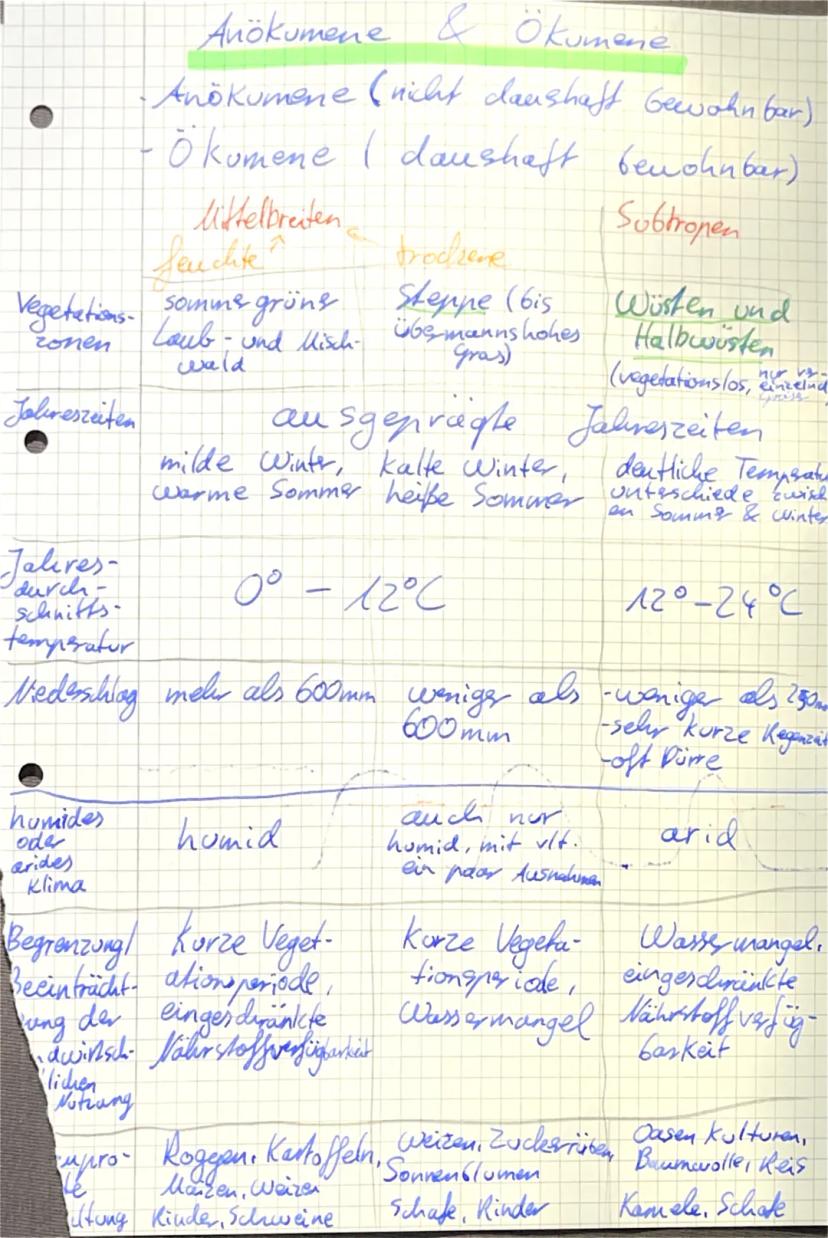 Anökumene & Ökumene
- Anökumene (nicht dauerhaft bewohnbar)
- Ökumene ( dauerhaft bewohnbar)
Mittelbreiten
Subtropen
feuchte
trockene
Vegetations-
zonen
sommergrüner
Laub- und Misch-
wald
Steppe (bis
übermannshohes
Gras)
Wüsten und
Halbwüsten
(vegetationslos, nur ver-
einzelnd
Jahreszeiten
ausgeprägte Jahreszeiten
milde Winter,
warme Sommer
kalte Winter,
heiße Sommer
deutliche Temperatu
unterschiede zwisch
en Sommer & Winter
Jahres-
durch-
schnitts-
temperatur
0° - 12°C
12° - 24°C
Niederschlag
mehr als 600mm
weniger als
600mm
- weniger als 250m
- sehr kurze Regenzeit
- oft Dürre
humides
oder
arides
Klima
humid
auch nur
humid, mit vlt.
ein paar Ausnahmen
arid
Begrenzung/
Beeinträcht-
ung der
dwirtsch-
lichen
Nutzung
Kurze Veget-
ationsperiode,
eingeschränkte
Nährstoffverfügbarkeit
Kurze Vegeta-
tionsperiode,
Wassermangel
Wassermangel,
eingeschränkte
Nährstoffverfüg-
barkeit
upro-
te
ltung
Roggen, Kartoffeln,
Maizen, Weizen
Rinder, Schweine
Weizen, Zuckerrüben,
Sonnenblumen
Schafe, Rinder
Oasen Kulturen,
Baumwolle, Reis
Kamele, Schafe